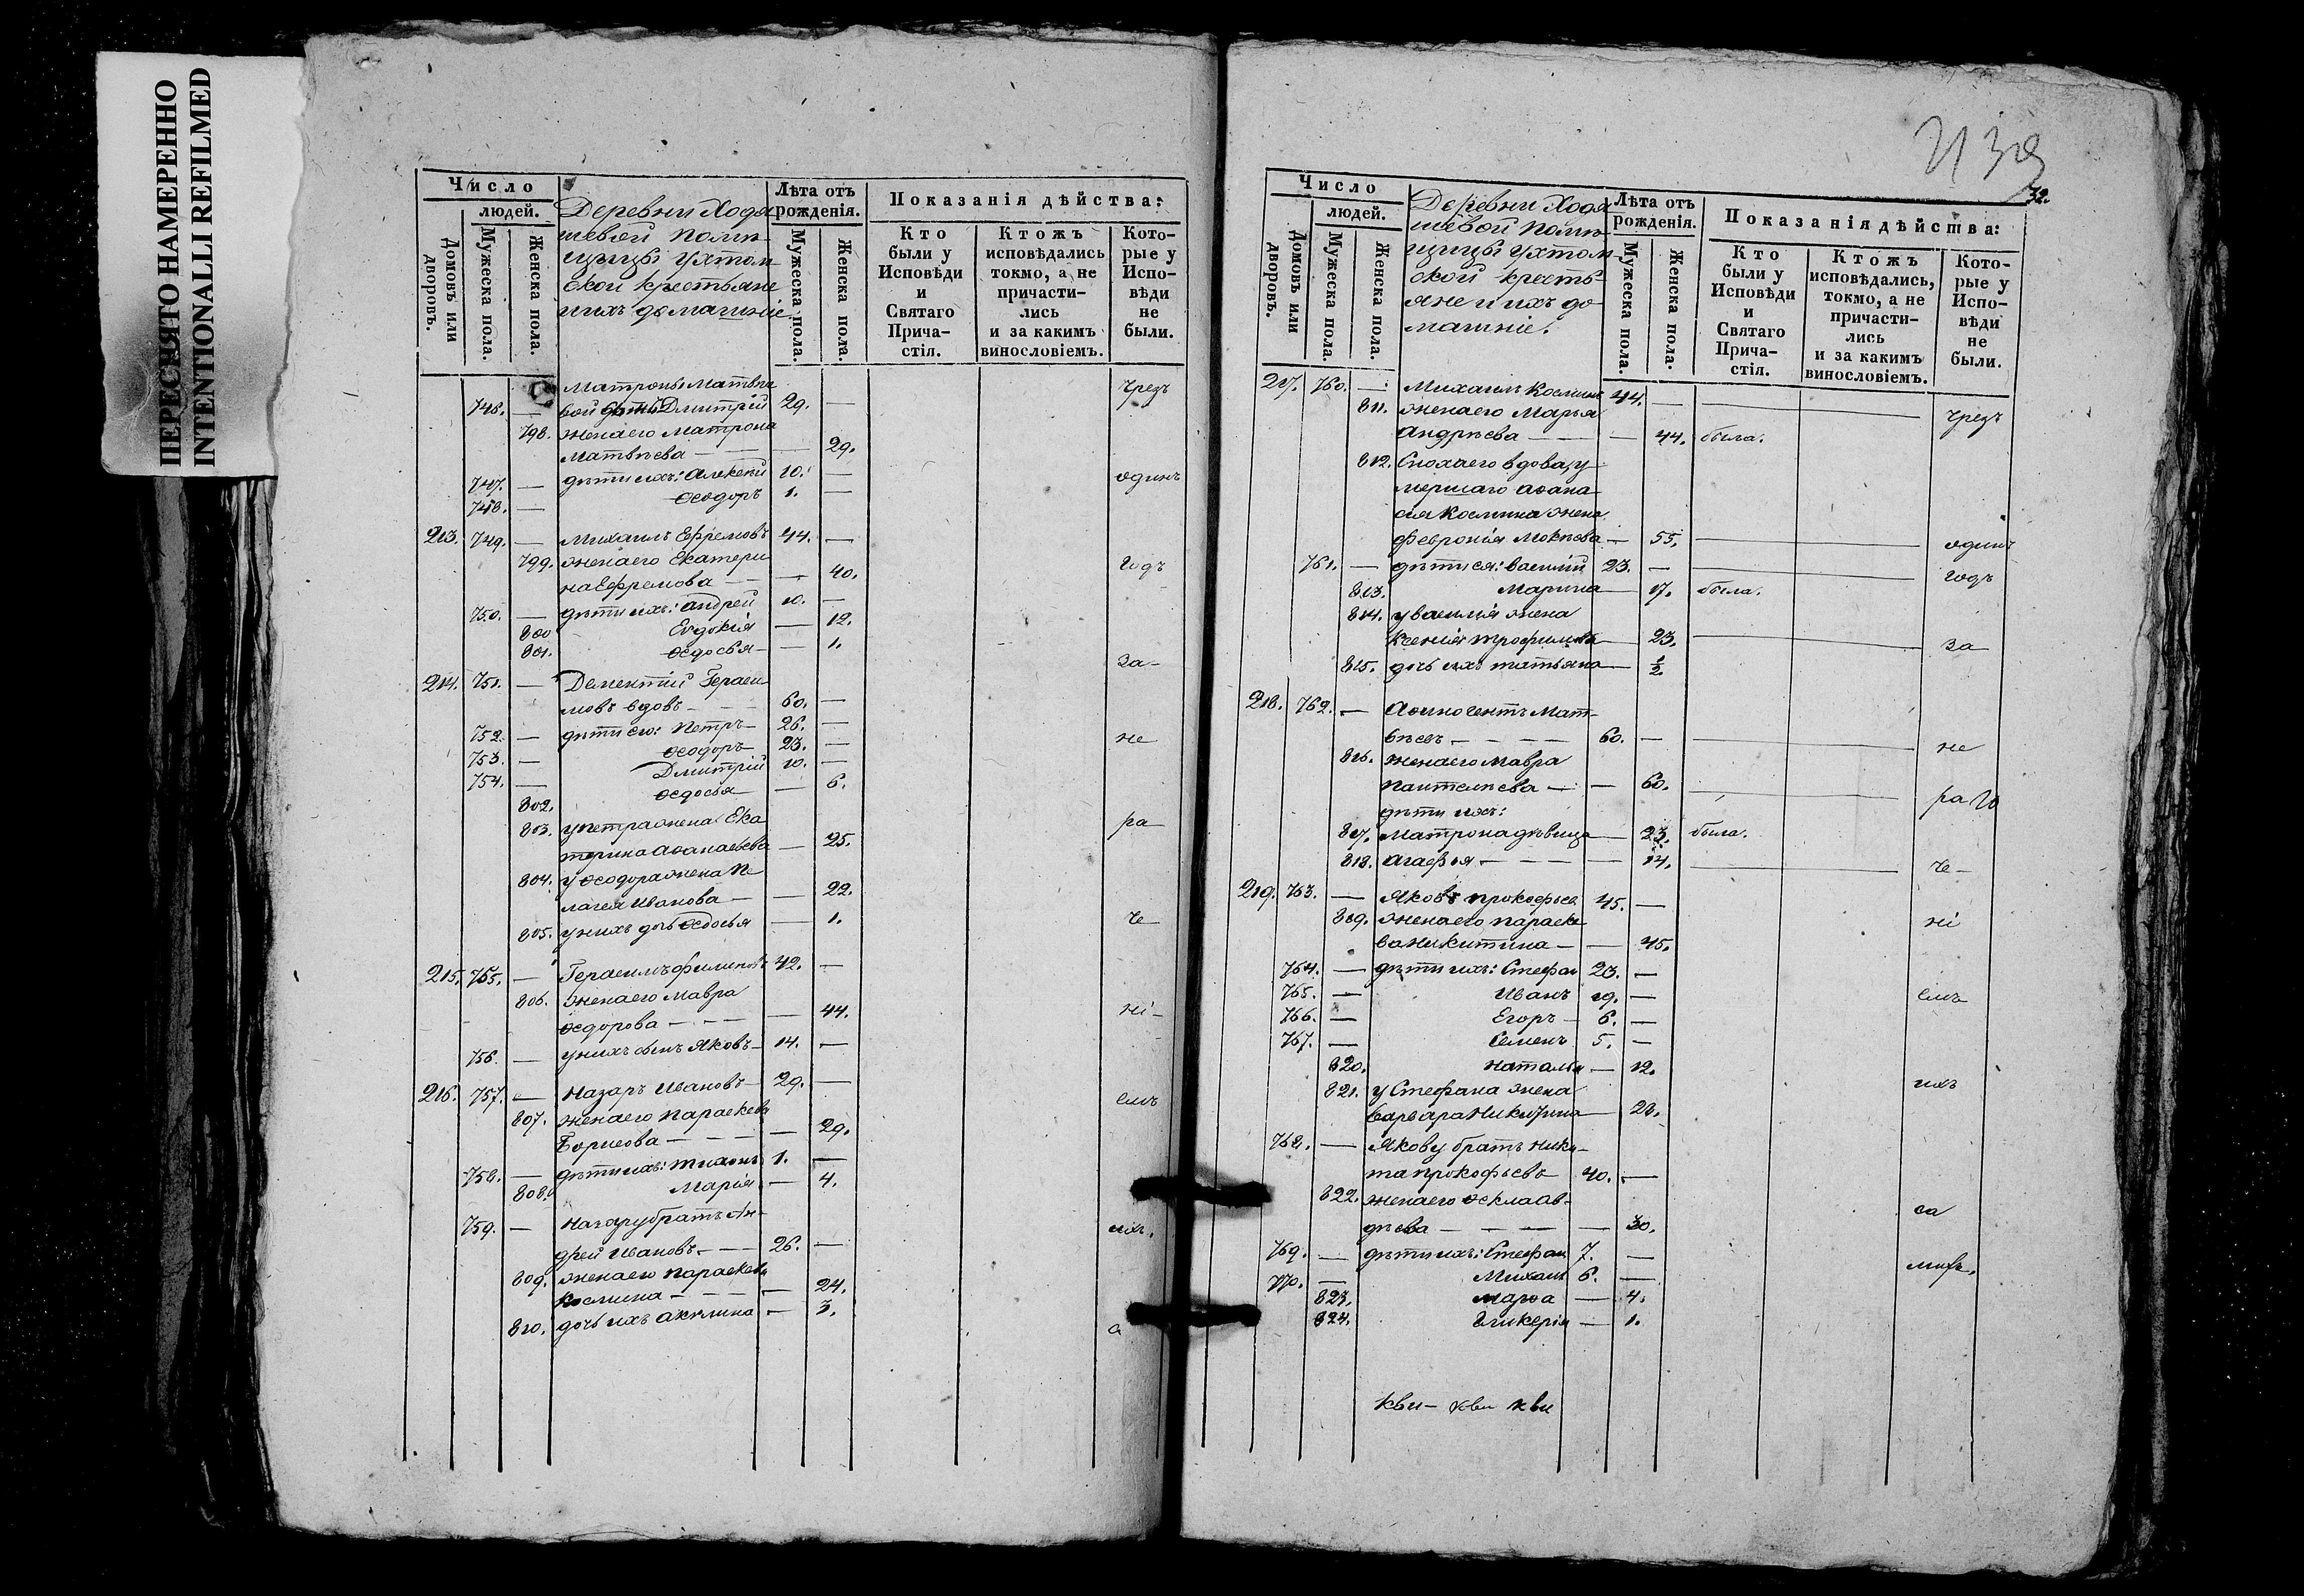 ПЕРЕСНЯТО НАМЕРЕННО
INTENTIONALLI REFILMED
Число
людей.
Домовъ или дворовъ.
Мужеска пола.
Женска пола.
Деревни Ходя
шевой помѣ-
щицы Ухтом-
ской крестьяне
и ихъ домашніе
Лѣта отъ рожденія.
Мужеска пола.
Женска пола.
Показанія дѣйства:
Кто были у Исповѣди и Святаго Прича-стія.
Ктожъ исповѣдались токмо, а не причасти-лись и за какимъ винословіемъ.
Кото-рые у Испо-вѣди не были.
Матроны Матвѣе чрезъ
746. — вой Дмитрій 29. —
798. жена его Матрона
Матвѣева — — 29.
747. — дѣти ихъ: Алексѣй 10. — одинъ
748. — Ѳеодоръ 1. —
213. 749. — Михаилъ Ефремовъ 44. —
799. жена его Екатери годъ
на Ефремова — — 40.
750. — дѣти ихъ: Андрей 10. —
800 Евдокія — 12.
801. Ѳедосья — — 1.
за-
214. 751. — Дементій Гераси
мовъ вдовъ — — 60. —
752. — дѣти его: Петръ — 26. —
753. — Ѳеодоръ 23. — не
754. — Дмитрій 10. —
802. Ѳедосья — 6.
803. у Петра жена Ека ра
терина Аѳанасьева — 25.
804. у Ѳеодора жена Пе
лагея Иванова — — 22.
805. у нихъ дочь Ѳедосья — 1. че
215. 755. — Герасимъ Филиповъ 42. —
806. жена его Мавра
Ѳедорова — — — 44. ні-
756. — у нихъ сынъ Яковъ — 14. —
216. 757. — Назаръ Ивановъ — 29. —
807. жена его Параскева емъ
Борисова — — — 29.
758. — дѣти ихъ: Тихонъ 1. —
808. Марія — 4.
759. — Назару братъ Ан-
дрей Ивановъ — — 26. — ихъ.
809. жена его Параскева
Космина — — — 24.
810. дочь ихъ Акилина — 3.
с
32.
Число
людей.
Домовъ или дворовъ.
Мужеска пола.
Женска пола.
Деревни Ходя
шевой помѣ-
щицы Ухтом-
ской кресть-
яне и ихъ до-
машніе.
Лѣта отъ рожденія.
Мужеска пола.
Женска пола.
Показанія дѣйства:
Кто были у Исповѣди и Святаго Прича-стія.
Ктожъ исповѣдались, токмо, а не причасти-лись и за какимъ винословіемъ.
Кото-рые у Испо-вѣди не были.
217. 760. — Михаилъ Косминъ 44. —
811. жена его Марья чрезъ
Андрѣева — — — 44. была.
812. Сноха его вдова, у-
мершаго Аѳана-
сія Космина жена
Февронія Мокѣева — 55. одинъ
761. — дѣти ея: Василій 23. — годъ
813. Марина — 17. была.
814. у Василія жена
Ксенія Трофимова — 23. за
815. дочь ихъ Татьяна — ½
218. 762. — Аѳиногентъ Мат-
вѣевъ — — — — 60. — не
816. жена его Мавра
Пантелѣева — — 60. ра
дѣти ихъ:
817. Матрона дѣвица — 23. была.
818. Агафья — — — — 14. че-
219. 763. — Яковъ Прокофьев 45. —
819. жена его Параске ні
ва Никитина — — 45.
764. — дѣти ихъ: Стефан 23. —
765. — Иванъ 19. — емъ
766. — Егоръ — 6. —
767. — Семенъ 5. —
820. Наталья — 12.
821. у Стефана жена ихъ
Варвара Никитина — 28.
768. — Якову братъ Ники-
та Прокофьевъ 40. —
822. жена его Ѳекла Ав- са
дѣева — — — — 30.
769. — дѣти ихъ: Стефан 7. —
770. — Михаил 6. — михъ.
823. Марѳа — 4.
824. Гликерія — 1.
Кви- кви кви